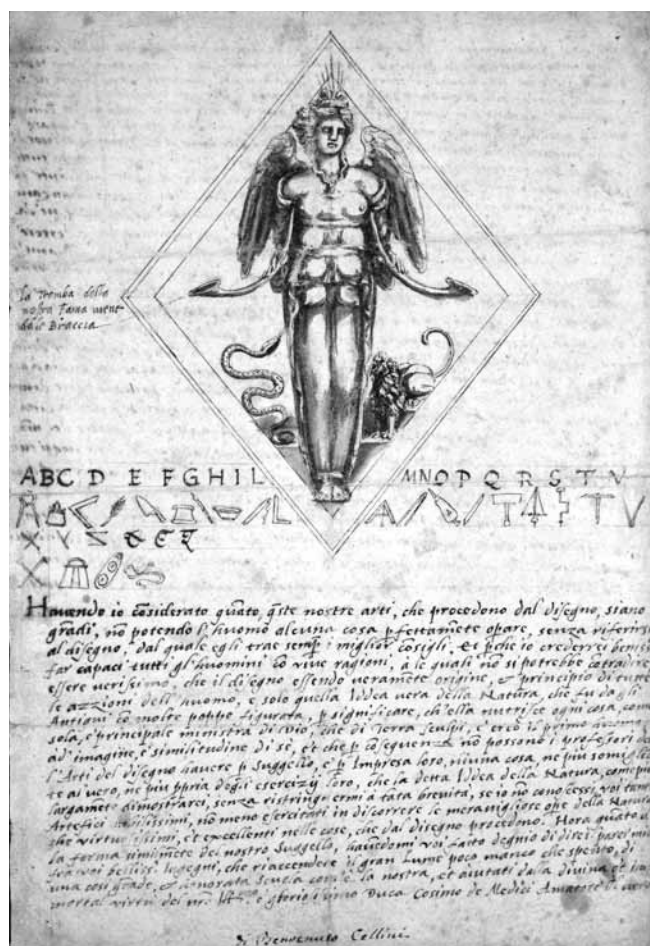 la Tromba della
nostra Fama viene
dale Braccia
ABC D E F G H I L M N O P Q R S T V
X Y Z & Ɛ
Havendo io cōsiderato quāto, q̄ste nostre arti, che procedono dal disegno, siano
grādi, nō potendo l'huomo alcuna cosa pfettamēte opare, senza riferirsi
al disegno, dal quale egli trae semp̄ i miglior cōsigli, et pche io crederrei
far capaci tutti gl'huomini cō vive ragioni, à le quali nō si potrebbe cōtradire
essere verissimo, che il disegno essendo veramēte origine, e principio di tutte
le azzioni dell'huomo, e solo quella Iddea vera della Natura, che fu dagli
Antiqui cō molte poppe figurata, p significare, ch'ella nutrisce ogni cosa, come
sola, e principale ministra di che di Terra sculpi, e creò il primo
ad'imagine, e similitudine di se, et che p cōsequenza nō possono i profesori
l'Arti del disegno havere p Suggello, e p Impresa loro, niuna cosa, ne piu
te al vero, ne piu ppria degli esercizij loro, che la detta Iddea della Natura, come
largamēte dimostrarei, senza ristringermi à tata brevità, se io nō conoscessi voi
Artefici nō meno esercitati in discorrere le meravigliose ope della Natura
che virtuosissimi, et excellenti nelle cose, che dal disegno procedono. Hora quāto
la forma del nostro Suggello, havēdomi voi fatto degnio di
bellis. Ingegni, che riaccendere il gran lume poco manco che spēto, di
una cosi grāde, et honorata Scuola com'è la nostra, et aiutati dalla divina et
mortal virtù del nr̄o et gloriosissimo Duca Cosimo de Medici Amatore di
di Benvenuto Cellini